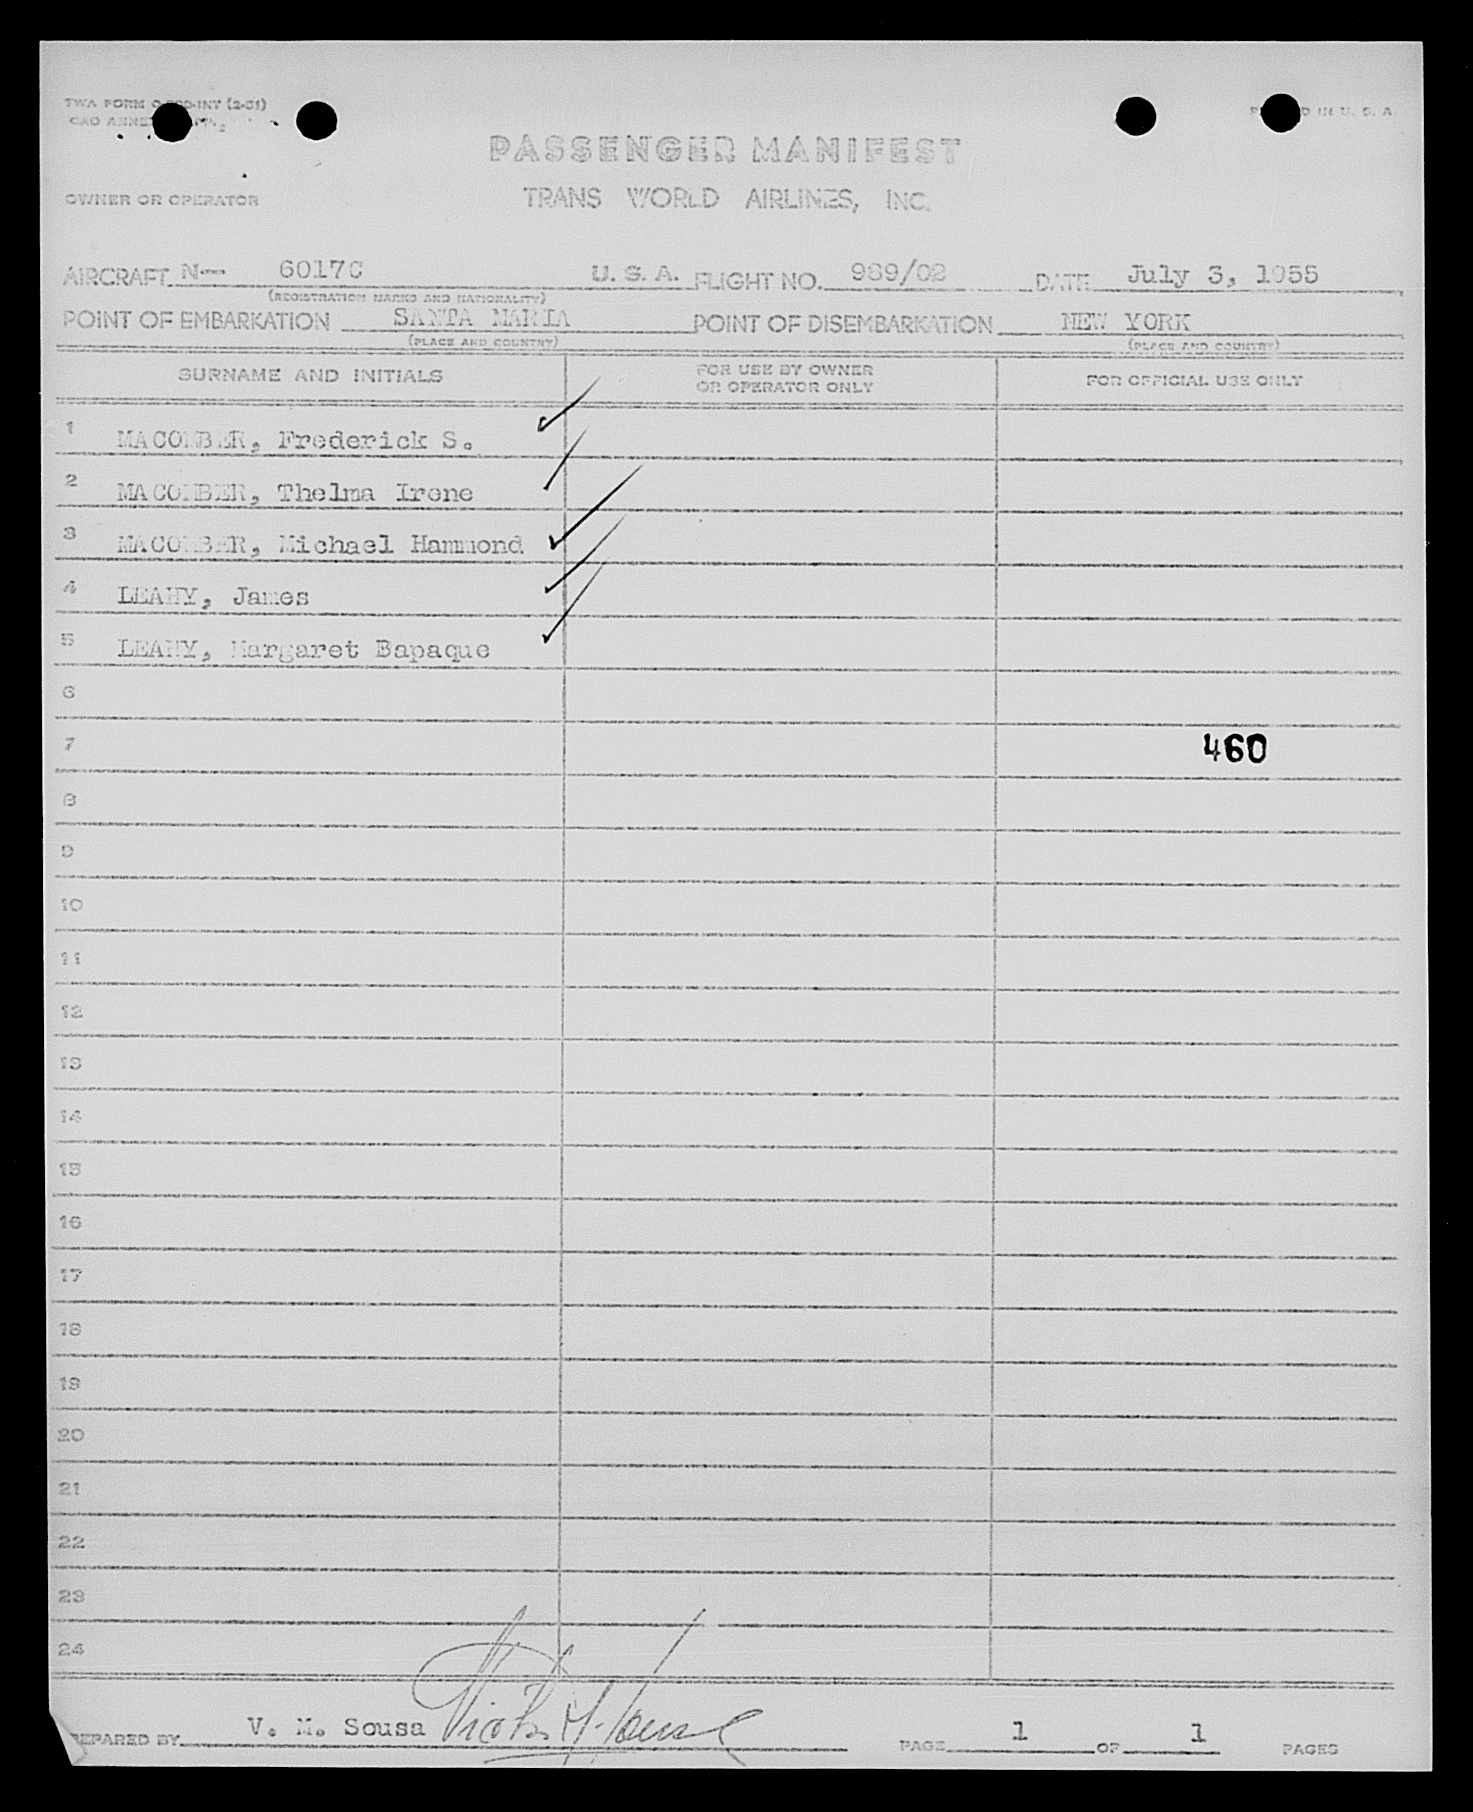 TWA FORM
PASSENGER MANIFEST
OWNER OR OPERATOR TRANS WORLD AIRLINES, INC.
AIRCRAFT N-- 6017C U. S. A. FLIGHT NO. 969/02 DATE July 3, 1955
(REGISTRATION MARKS AND NATIONALITY)
POINT OF EMBARKATION SANTA MARIA POINT OF DISEMBARKATION NEW YORK
(PLACE AND COUNTRY) (PLACE AND COUNTRY)
SURNAME AND INITIALS FOR USE BY OWNER OR OPERATOR ONLY FOR OFFICIAL USE ONLY
1 MACOMBER, Frederick S.
2 MACOMBER, Thelma Irene
3 MACOMBER, Michael Hammond
4 LEAHY, James
5 LEAHY, Margaret Bapaque
6
7 460
8
9
10
11
12
13
14
15
16
17
18
19
20
21
22
23
24
PREPARED BY V. M. Sousa Victor M. Sousa PAGE 1 OF 1 PAGES